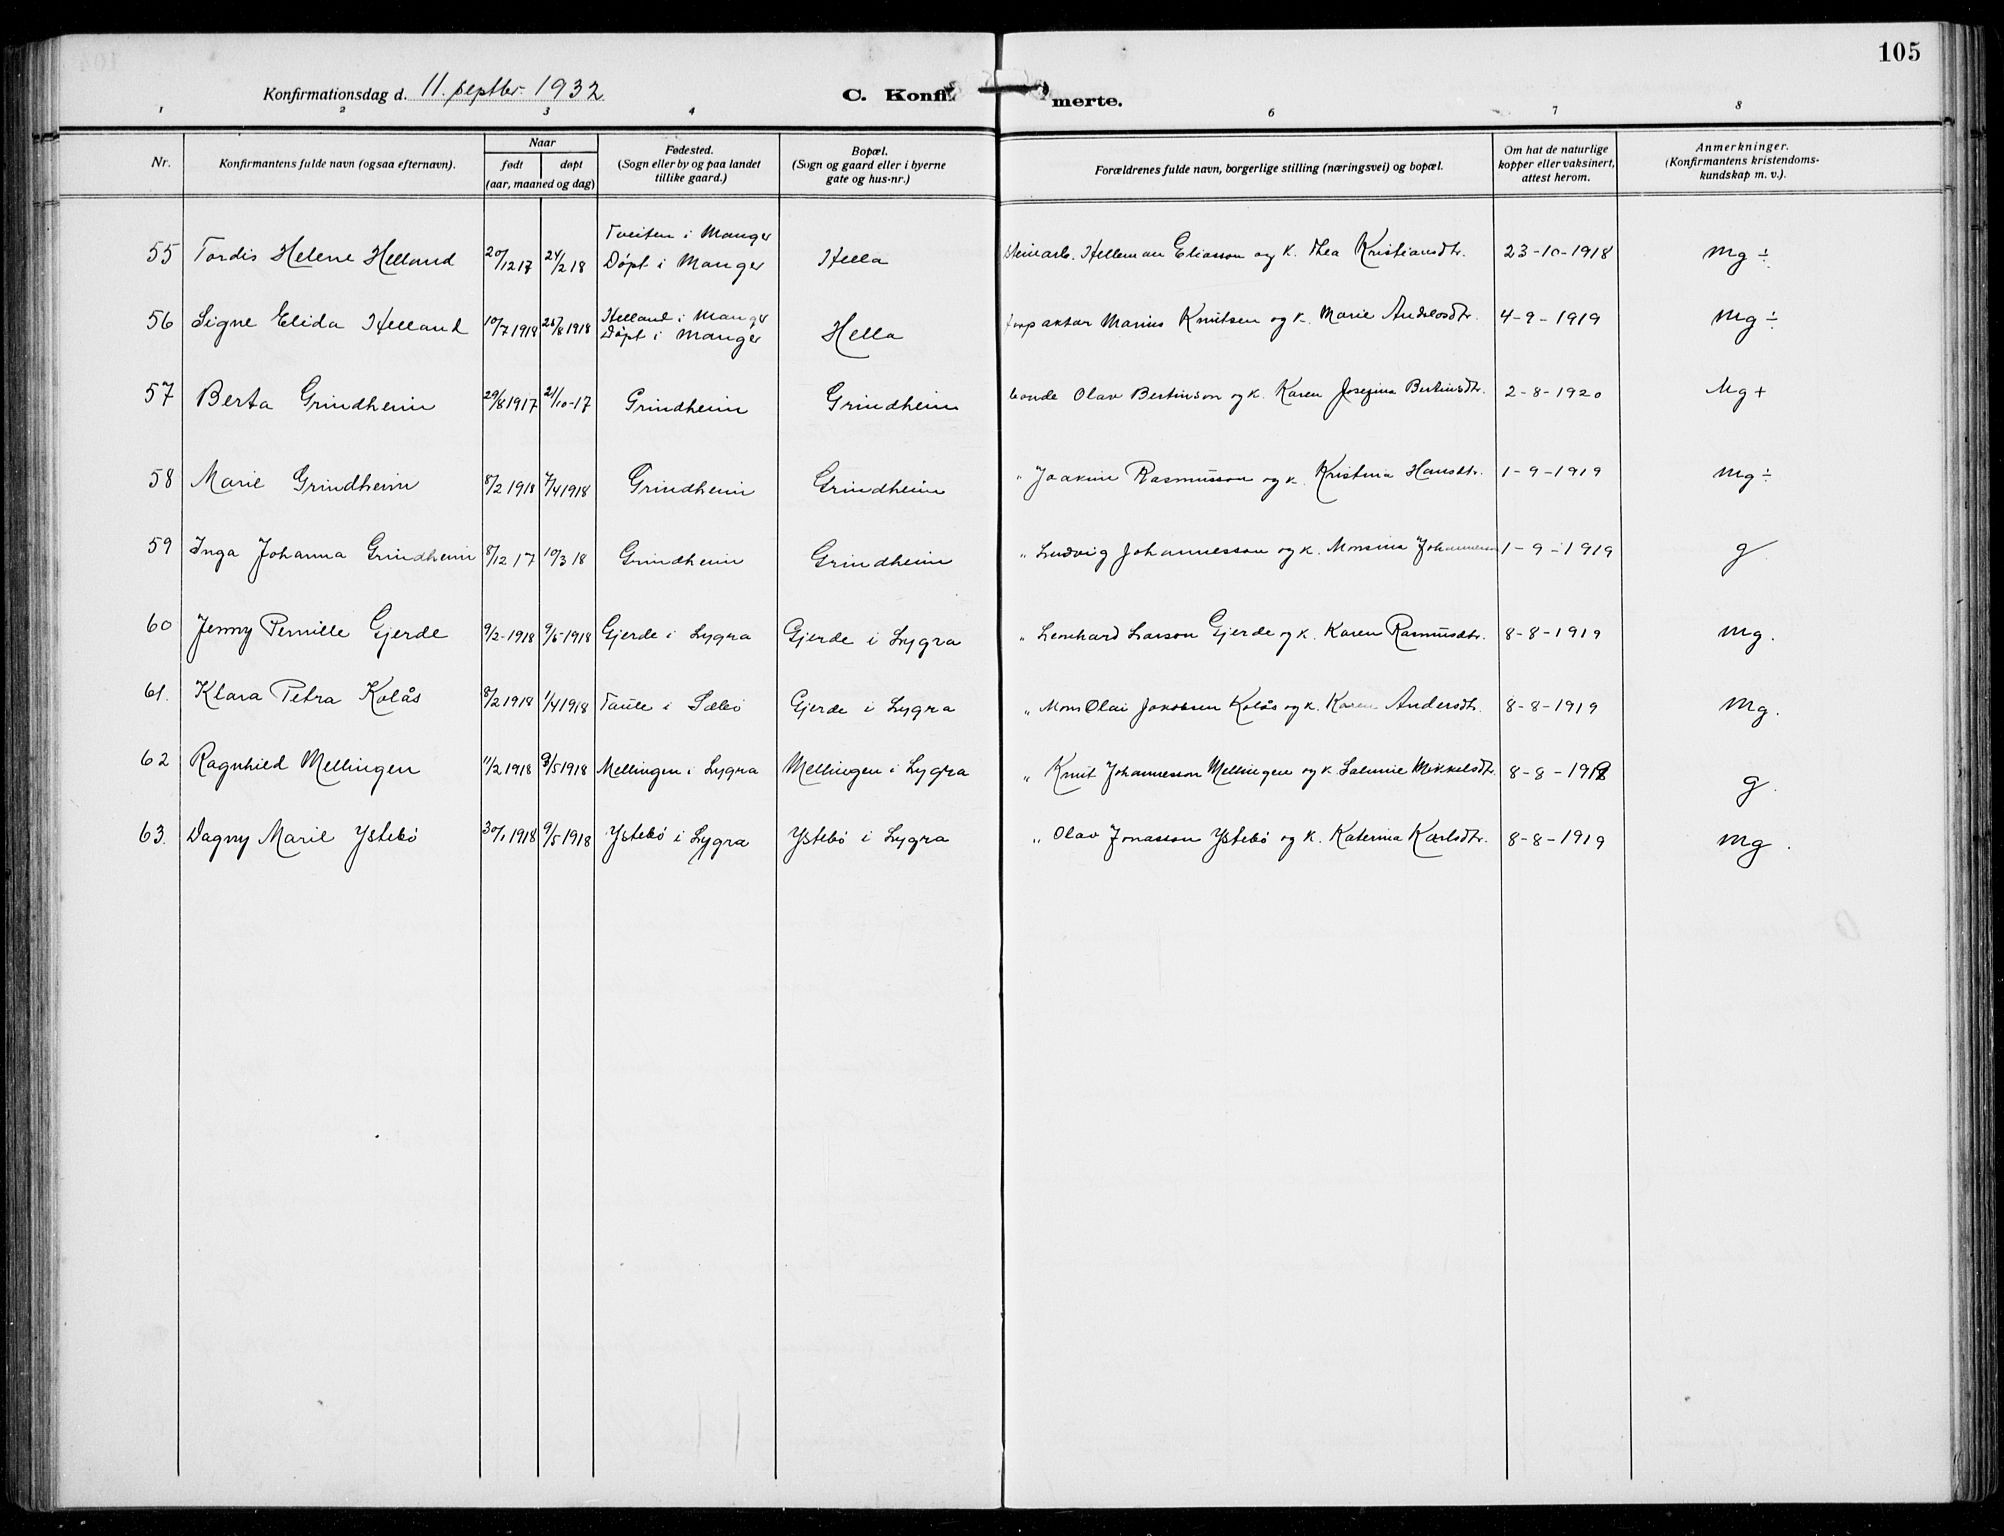 105
Konfirmationsdag d. 11. septbr. 1932
C. Konfirmerte.
1 2 3 4 6 7 8
Nr. Konfirmantens fulde navn (ogsaa efternavn). Naar født døpt (aar, maaned og dag) Fødested. (Sogn eller by og paa landet tillike gaard.) Bopæl. (Sogn og gaard eller i byerne gate og hus-nr.) Forældrenes fulde navn, borgerlige stilling (næringsvei) og bopæl. Om hat de naturlige kopper eller vaksinert, attest herom. Anmerkninger. (Konfirmantens kristendomskundskap m. v.).
Tveiten i Manger
55 Tordis Helene Helland 20/12 17 24/2 18 Døpt i Manger Hella Steinarb. Helleman Eliasson og k. Thea Kristiansdtr. 23-10-1918 Mg ÷
Helland i Manger
56 Signe Elida Helland 10/7 1918 25/8 1918 Døpt i Manger Hella Marius Knutsen og k. Marie 4-9-1919 Mg ÷
57 Berta Grindheim 29/8 1917 21/10-17 Grindheim Grindheim bonde Olav Bertinson og k. Karen Josefina Bertinsdtr. 2-8-1920 Mg +
58 Marie Grindheim 8/2 1918 7/4 1918 Grindheim Grindheim " Joakim Rasmusson og k. Kristina Hansdtr. 1-9-1919 Mg ÷
59 Inga Johanna Grindheim 8/12 17 10/3 18 Grindheim Grindheim " Ludvig Johannesson og k. Monsina 1-9-1919 g
60 Jenny Pernille Gjerde 9/2-1918 9/5-1918 Gjerde i Lygra Gjerde i Lygra " Leonhard Larson Gjerde og k. Karen Rasmusdtr. 8-8-1919 Mg.
61. Klara Petra Kolås 8/2 1918 1/4 1918 Taule i Sæbø Gjerde i Lygra " Mons Olai Jakobsen Kolås og k. Karen Andersdtr. 8-8-1919 Mg.
62 Ragnhild Mellingen 11/2 1918 9/5 1918 Mellingen i Lygra Mellingen i Lygra " Knut Johannesson Mellingen og k. Salmine Mikkelsdtr. 8-8-1919 g.
63. Dagny Marie Ystebø 30/1 1918 9/5 1918 Ystebø i Lygra Ystebø i Lygra " Olav Jonasson Ystebø og k. Katerina Karlsdtr. 8-8-1919 Mg.